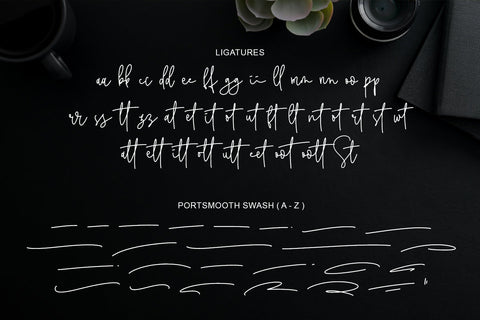 LIGATURES
aa bb cc dd ee ff gg ii ll mm nn oo pp
rr ss tt zz at et it ot ut ft lt nt ot rt st wt
att ett itt ott utt eet oot oott St
PORTSMOOTH SWASH ( A - Z )